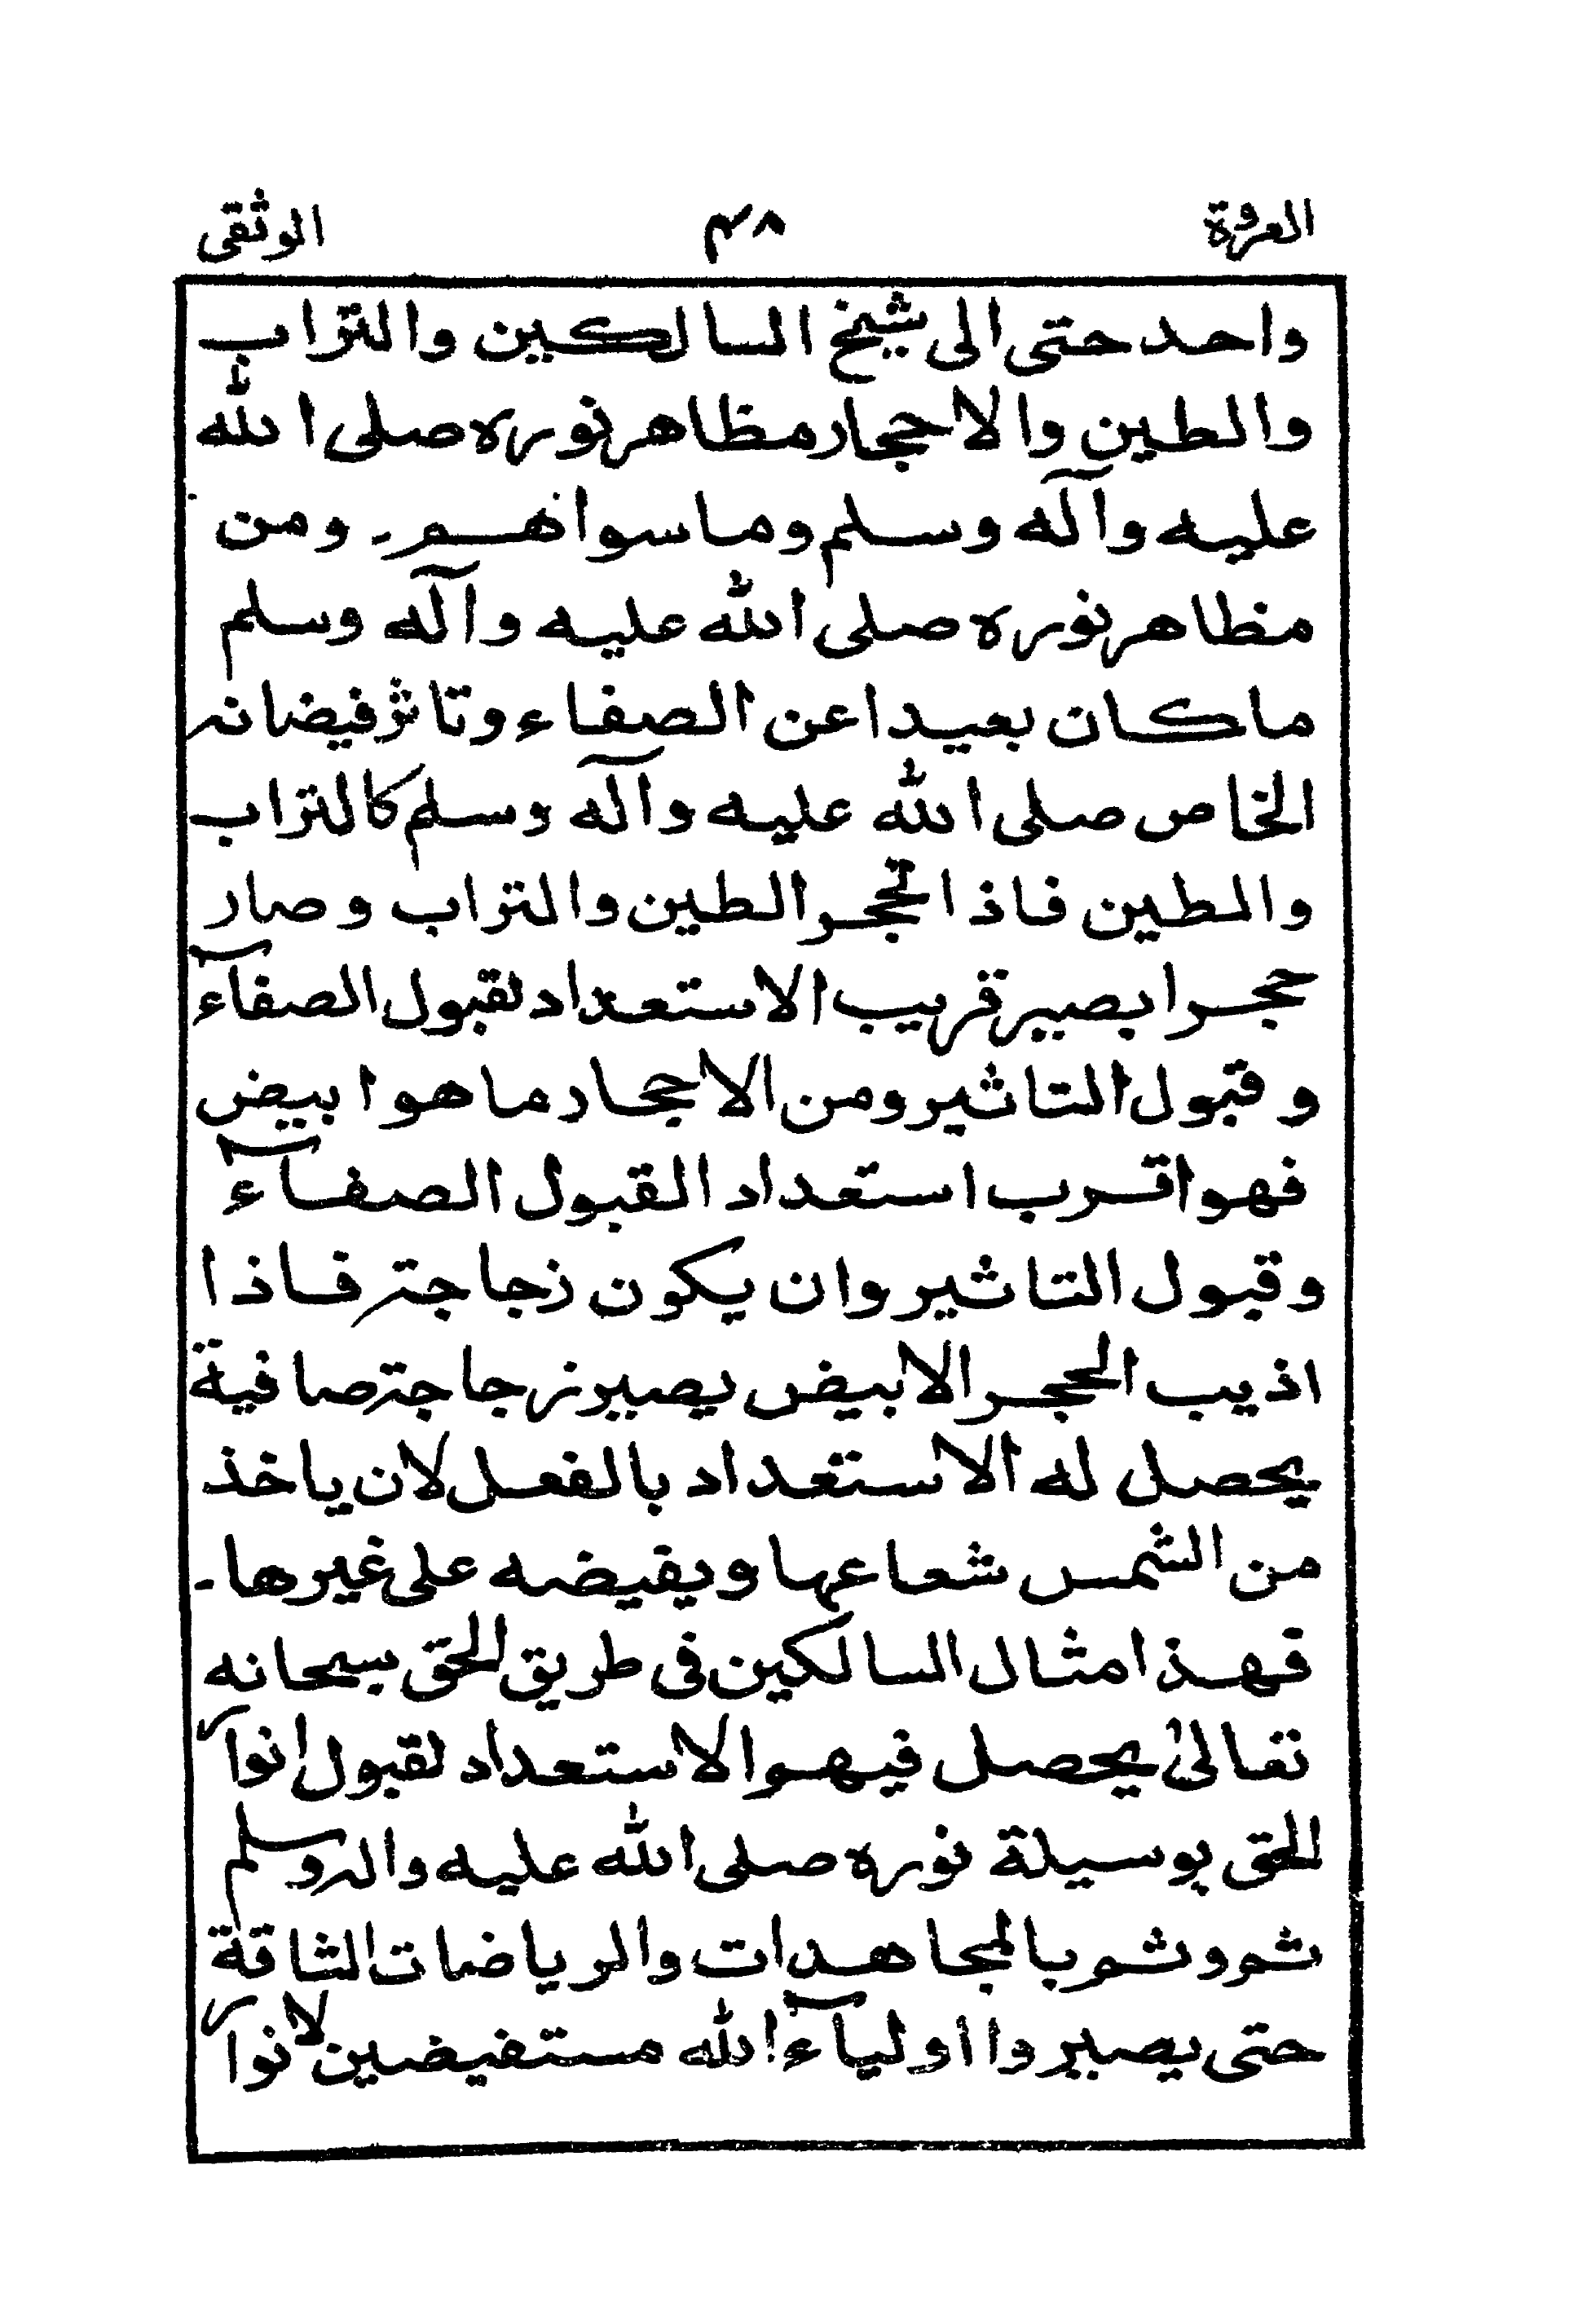 العروة ۴۸ الوثقى
واحد حتى الى شيخ السالكين والتراب
والطين والاحجار مظاهر نوره صلى الله
عليه وآله وسلم وما سواهم۔ ومن
مظاهر نوره صلى الله عليه وآله وسلم
ما كان بعيدا عن الصفاء وتاثر فيضانه
الخاص صلى الله عليه وآله وسلم كالتراب
والطين فاذا تحجر الطين والتراب وصار
حجرا يصير قريب الاستعداد لقبول الصفآء
وقبول التاثير ومن الاحجار ما هو ابيض
فهو اقرب استعداد القبول الصفآء
وقبول التاثير وان يكون زجاجة فاذا
اذيب الحجر الابيض يصير زجاجة صافية
يحصل له الاستعداد بالفعل لان ياخذ
من الشمس شعاعها ويفيضه على غيرها۔
فهذا مثال السالكين فى طريق الحق سبحانه
تعالىٰ يحصل فيهو الاستعداد لقبول انوار
الحق بوسيلة نوره صلى الله عليه واله وسلم
ثم وثم بالمجاهدات والرياضات الشاقة
حتى يصيروا اوليآء الله مستفيضين لانوار